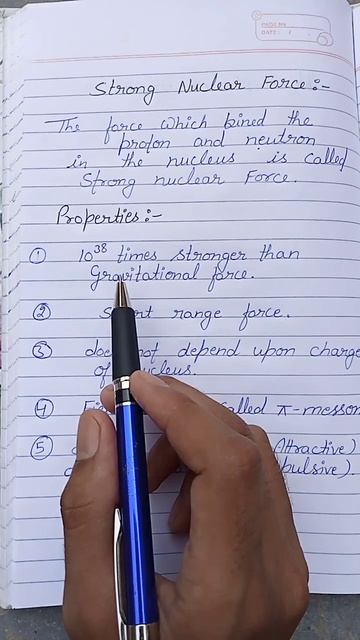 PAGE NO.
DATE: / /
Strong Nuclear Force:-
The force which joined the
proton and neutron
in the nucleus is called
Strong nuclear Force.
Properties:-
① 10³⁸ times stronger than
Gravitational force.
② range force.
③ not depend upon charge
of
④ called π-messon
⑤ (Attractive)